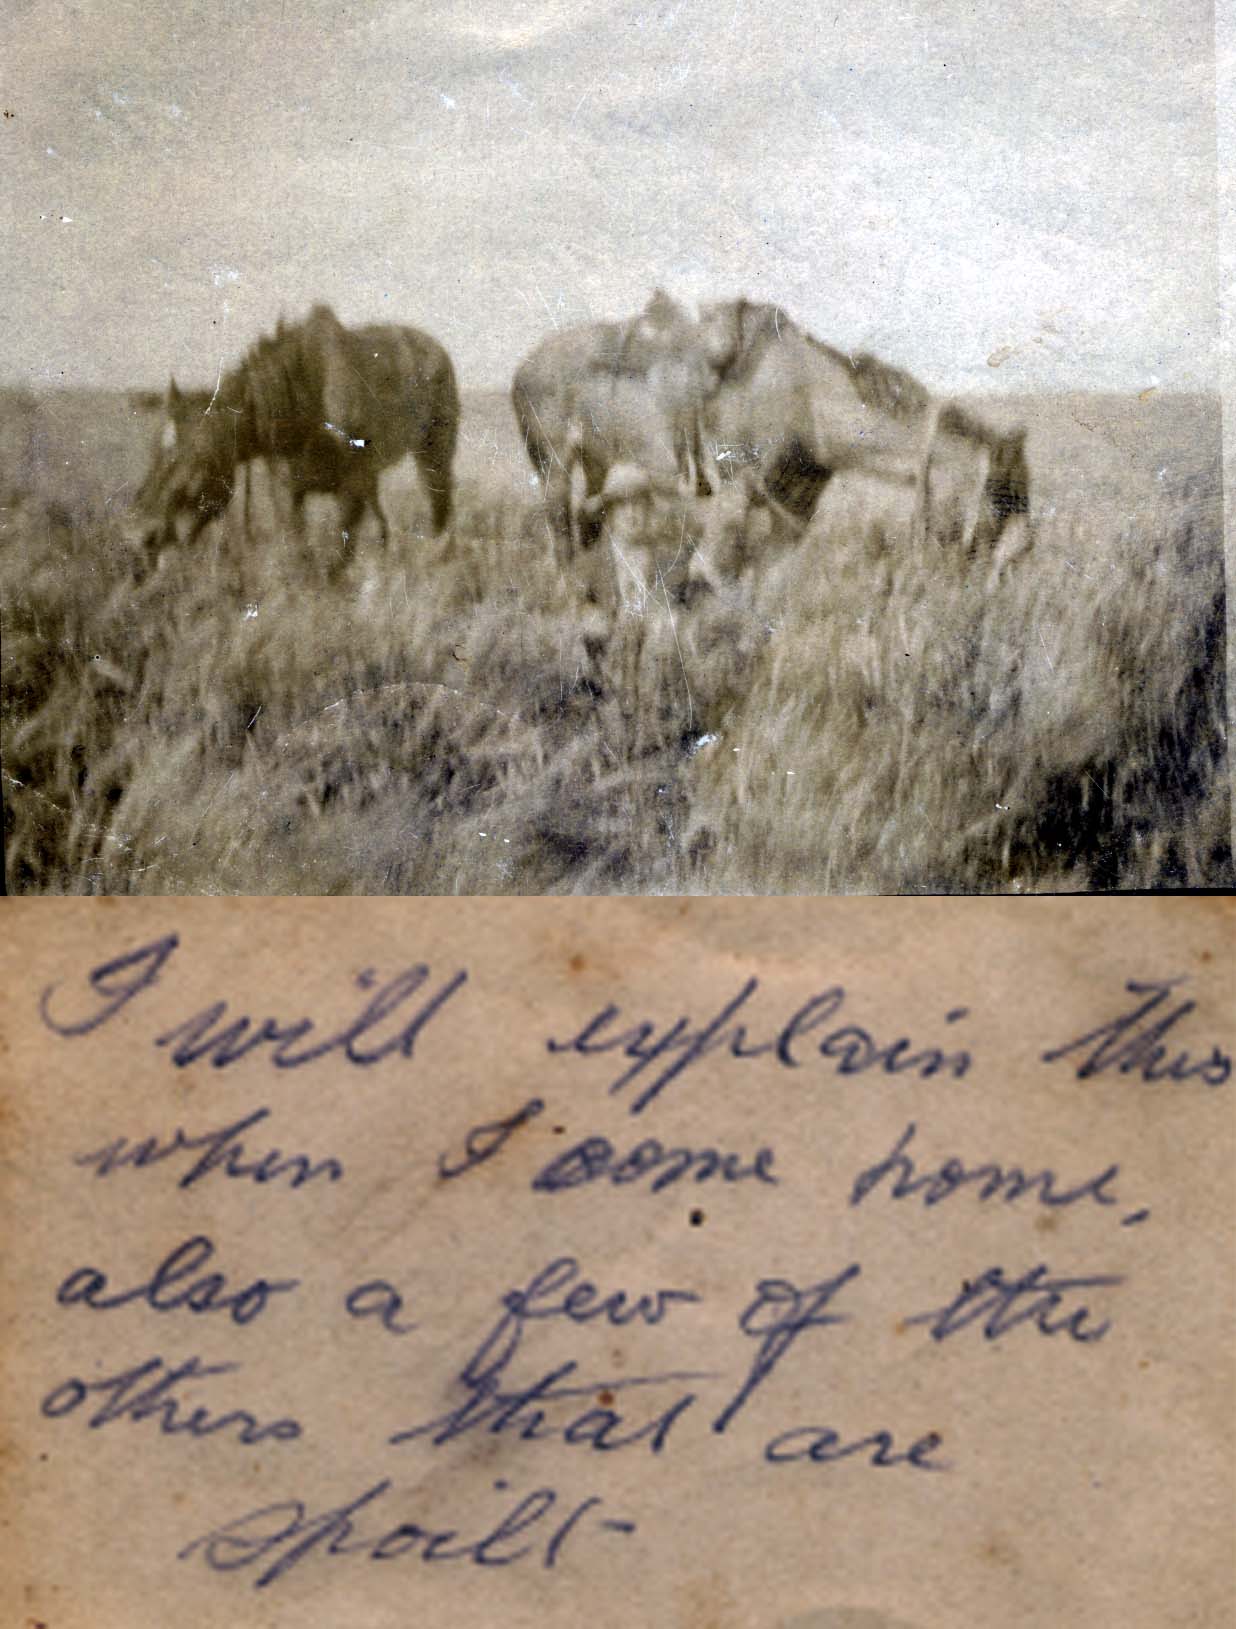 I will explain this
when I come home,
also a few of the
others that are
spoilt